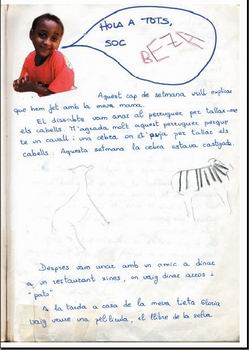 HOLA A TOTS,
SOC
BEZA
Aquest cap de setmana vull explicar
que hem fet amb la meva mama.
El dissabte vam anar al perruquer per tallar-me
els cabells. M'agrada molt aquest perruquer perque
te un cavall i una cebra on et puja per tallar els
cabells. Aquesta setmana la cebra estava castigada.
Despres vam anar amb un amic a dinar
a un restaurant xines, on vaig dinar arros i
"pato".
A la tarda a casa de la meva tieta Gloria
vaig veure una pel·licula, el llibre de la selva.